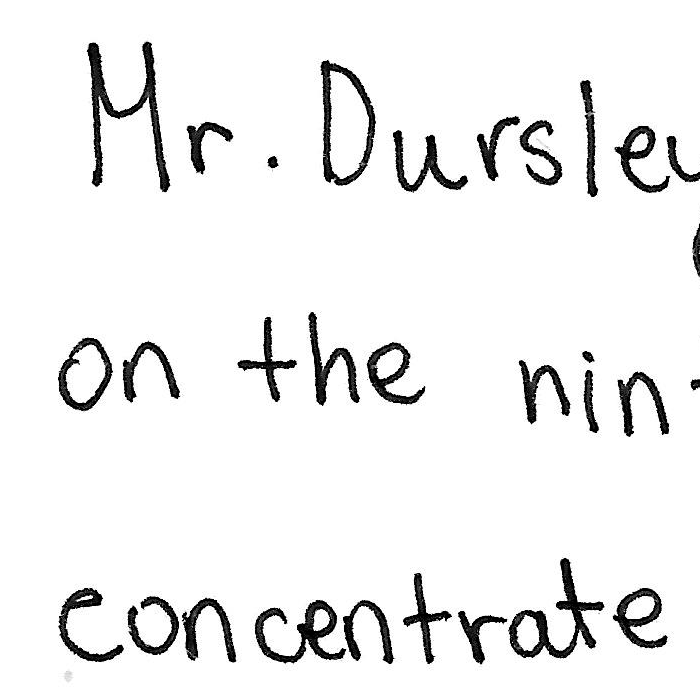 Mr. Dursley
on the nin
concentrate